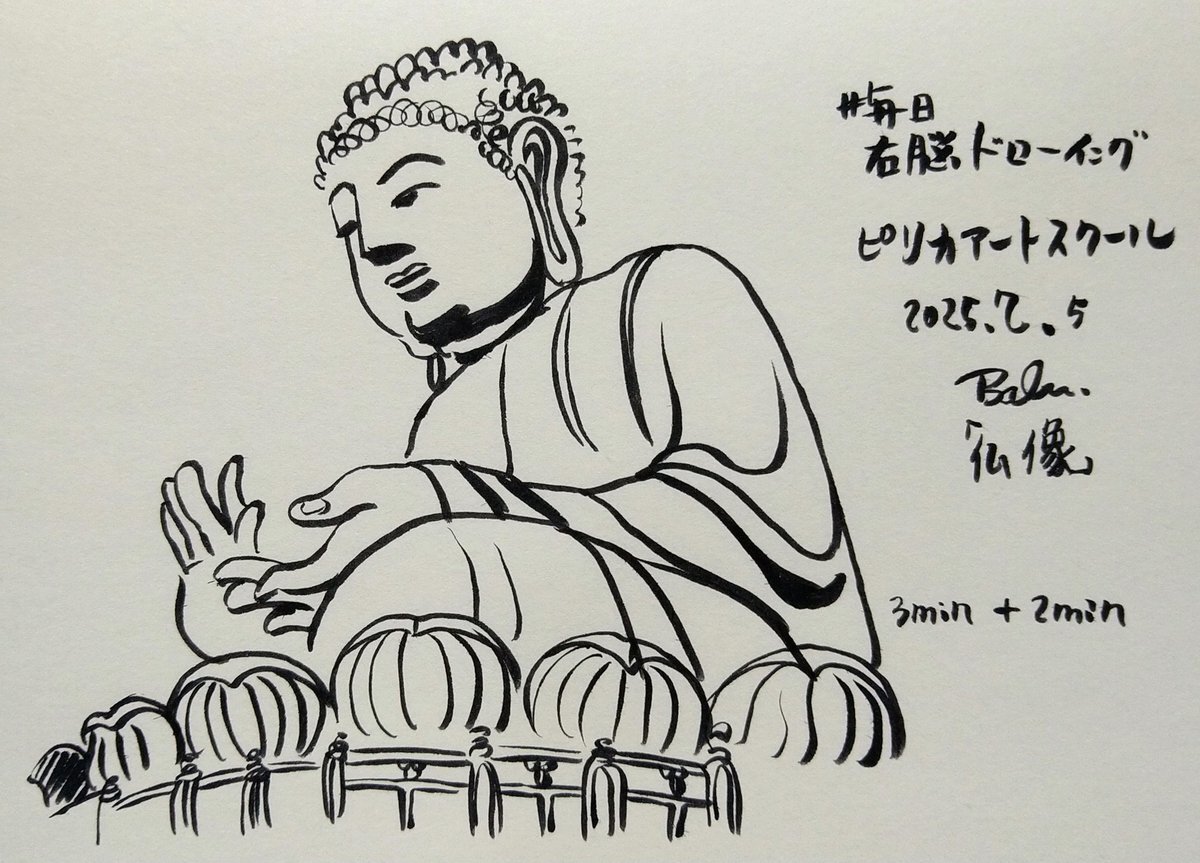 #毎日
右脳ドローイング
ピリカアートスクール
2025.7.5
「仏像」
3min + 2min